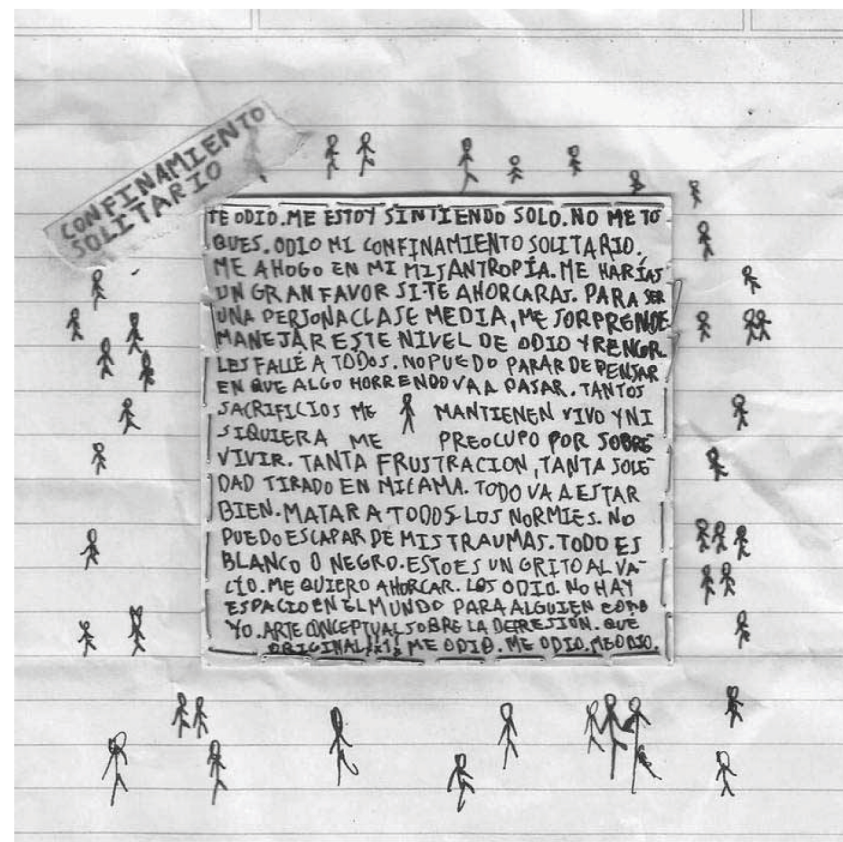 CONFINAMIENTO
SOLITARIO
TE ODIO. ME ESTOY SINTIENDO SOLO. NO ME TO
QUES. ODIO MI CONFINAMIENTO SOLITARIO.
ME AHOGO EN MI MISANTROPÍA. ME HARÍAS
UN GRAN FAVOR SI TE AHORCARAS. PARA SER
UNA PERSONA CLASE MEDIA, ME SORPRENDE
MANEJAR ESTE NIVEL DE ODIO Y RENCOR.
LES FALLÉ A TODOS. NO PUEDO PARAR DE PENSAR
EN QUE ALGO HORRENDO VA A PASAR. TANTOS
SACRIFICIOS ME MANTIENEN VIVO Y NI
SIQUIERA ME PREOCUPO POR SOBRE
VIVIR. TANTA FRUSTRACION, TANTA SOLE
DAD TIRADO EN MI CAMA. TODO VA A ESTAR
BIEN. MATAR A TODOS LOS NORMIES. NO
PUEDO ESCAPAR DE MIS TRAUMAS. TODO ES
BLANCO O NEGRO. ESTO ES UN GRITO AL VA-
CÍO. ME QUIERO AHORCAR. LOS ODIO. NO HAY
ESPACIO EN EL MUNDO PARA ALGUIEN COMO
YO. ARTE CONCEPTUAL SOBRE LA DEPRESIÓN. QUE
ORIGINAL. ME ODIO. ME ODIO. ME ODIO.